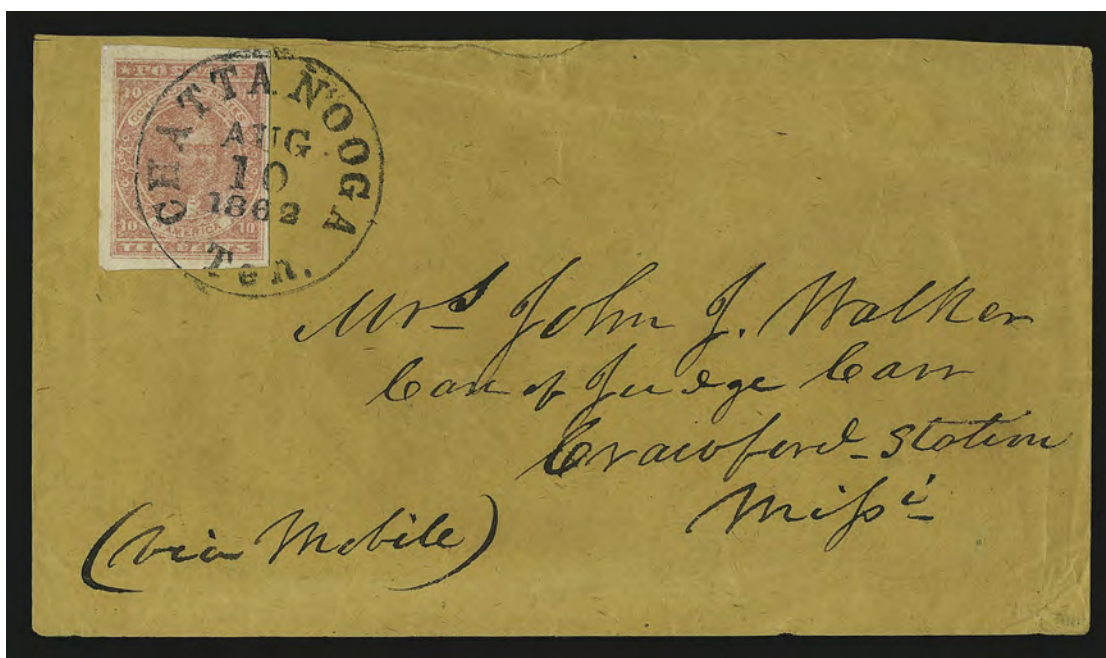 POSTAGE
10 10
CONFEDERATE STATES
OF AMERICA
10 10
TEN CENTS
CHATTANOOGA
AUG
10
1862
Ten.
Mrs John J. Walker
Care of Judge Carr
Crawford Station
Missi
(via Mobile)